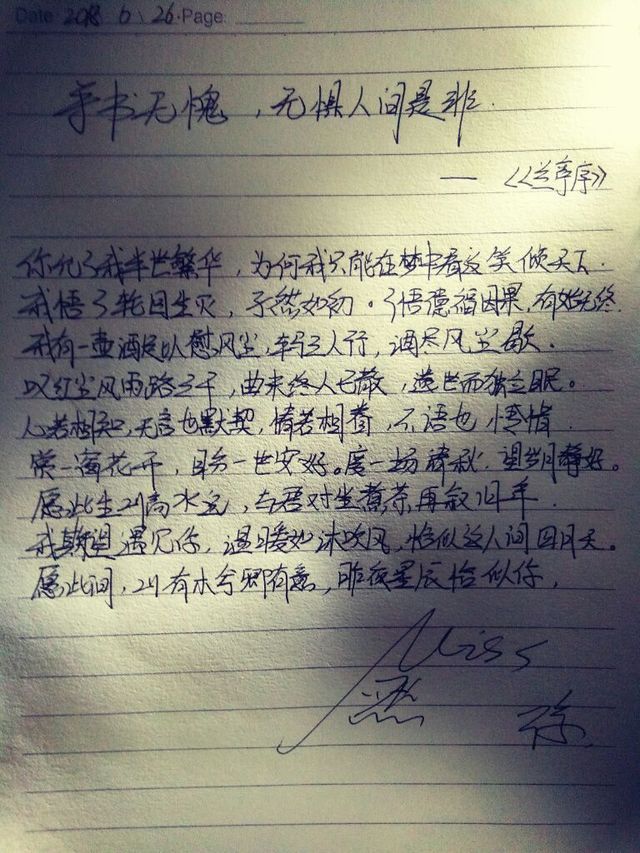 Date: 2018.6.26 Page:
手书无愧,无惧人间是非.
—《兰亭序》
你允了我半世繁华,为何我只能在梦中看这笑倾天下.
我悟了轮回生灭,孑然如初。了悟德福因果,有始无终.
我有一壶酒足以慰风尘,车马三人行,酒尽风尘歇.
叹红尘风雨路三千,曲未终人已散,遗世而独立眠。
心若相知,无言也默契,情若相眷,不语也怜惜.
赏一窗花开,自多一世安好。度一场春秋.望岁月静好。
愿此生山高水远,与君对坐煮茶再叙旧年.
我期望遇见你,温暖如沐吹风,恰似这人间四月天。
愿此间,山有木兮卿有意,昨夜星辰恰似你,
Miss